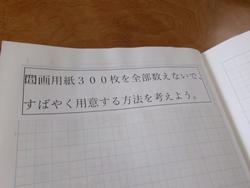 問画用紙300枚を全部数えないで、
すばやく用意する方法を考えよう。